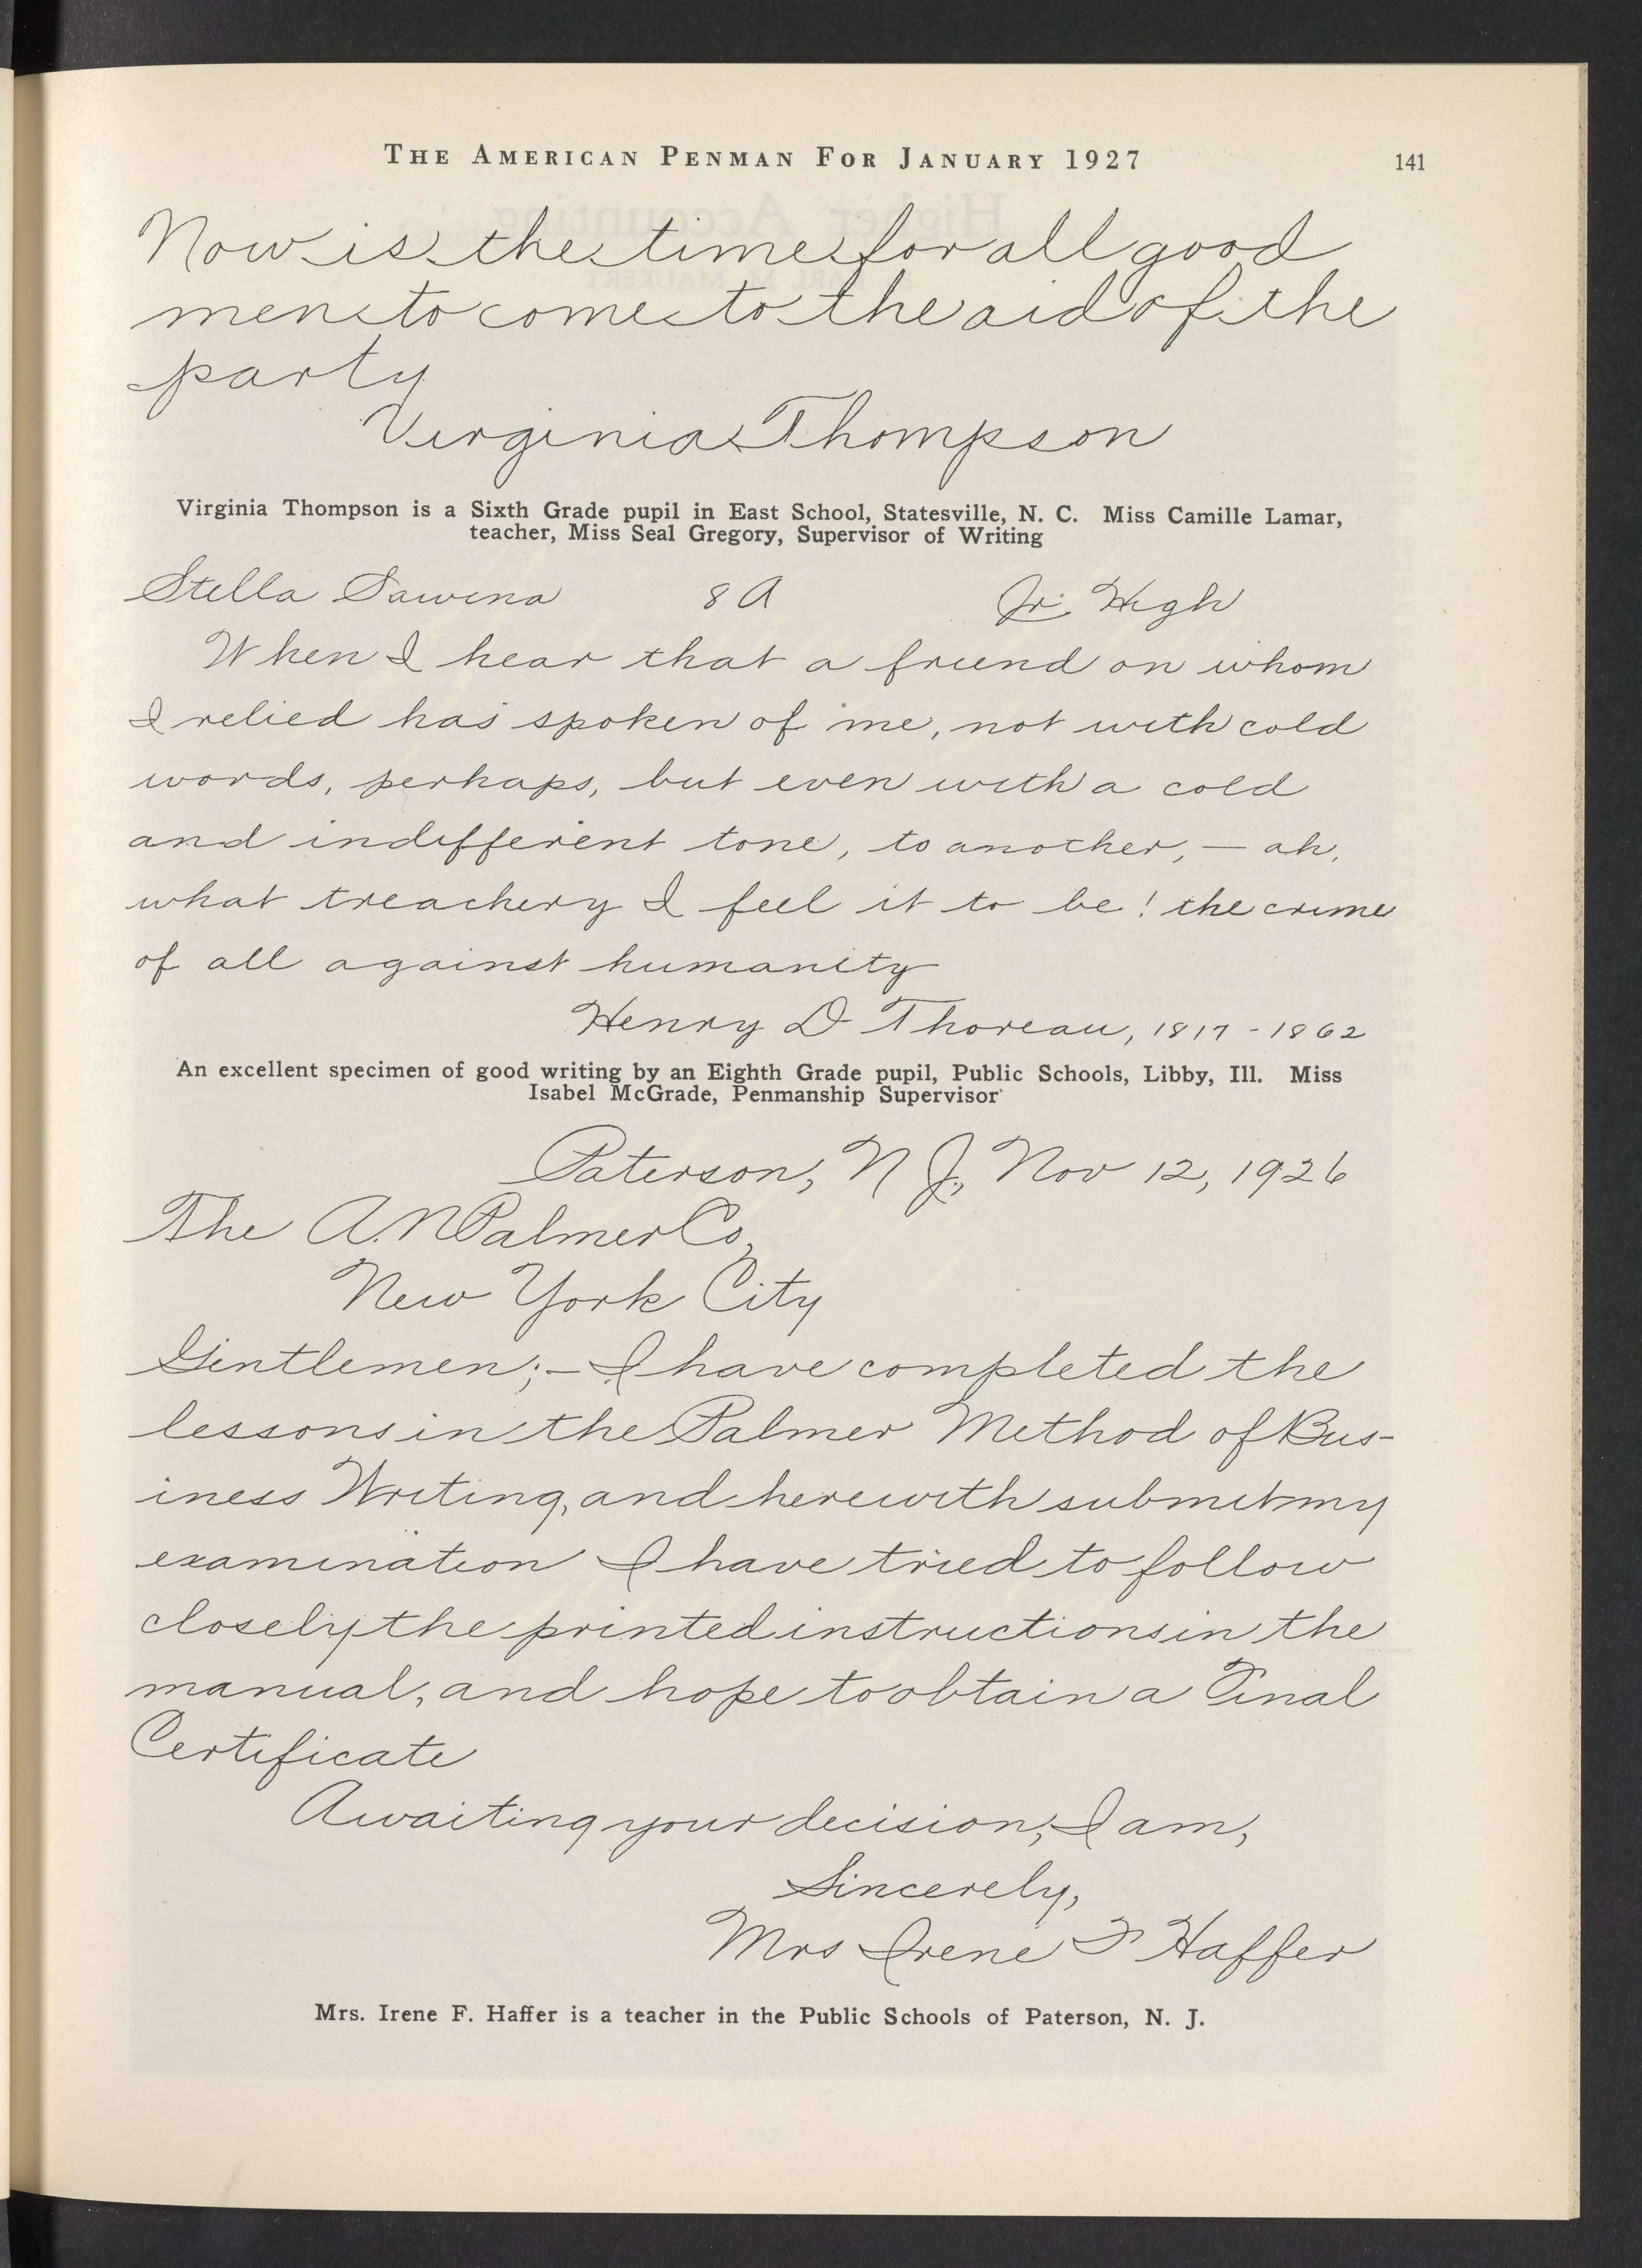 THE AMERICAN PENMAN FOR JANUARY 1927 141
Now is the time for all good
men to come to the aid of the
party
Virginia Thompson
Virginia Thompson is a Sixth Grade pupil in East School, Statesville, N. C. Miss Camille Lamar,
teacher, Miss Seal Gregory, Supervisor of Writing
Stella Sawina 8 A Jr. High
When I hear that a friend on whom
I relied has spoken of me, not with cold
words, perhaps, but even with a cold
and indifferent tone, to another, — ah,
what treachery I feel it to be! the crime
of all against humanity
Henry D Thoreau, 1817 - 1862
An excellent specimen of good writing by an Eighth Grade pupil, Public Schools, Libby, Ill. Miss
Isabel McGrade, Penmanship Supervisor
Paterson, N J., Nov 12, 1926
The A. N Palmer Co,
New York City
Gentlemen;— I have completed the
lessons in the Palmer Method of Bus-
iness Writing, and herewith submit my
examination I have tried to follow
closely the printed instructions in the
manual, and hope to obtain a Final
Certificate
Awaiting your decision, I am,
Sincerely,
Mrs Irene F Haffer
Mrs. Irene F. Haffer is a teacher in the Public Schools of Paterson, N. J.